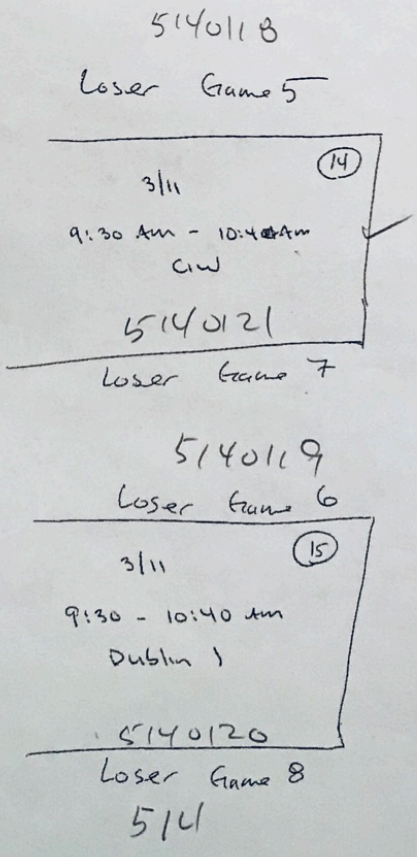 5140118
Loser Game 5
14
3/11
9:30 Am - 10:40 Am
CIW
5140121
Loser Game 7
5140119
Loser Game 6
15
3/11
9:30 - 10:40 Am
Dublin 1
5140120
Loser Game 8
514